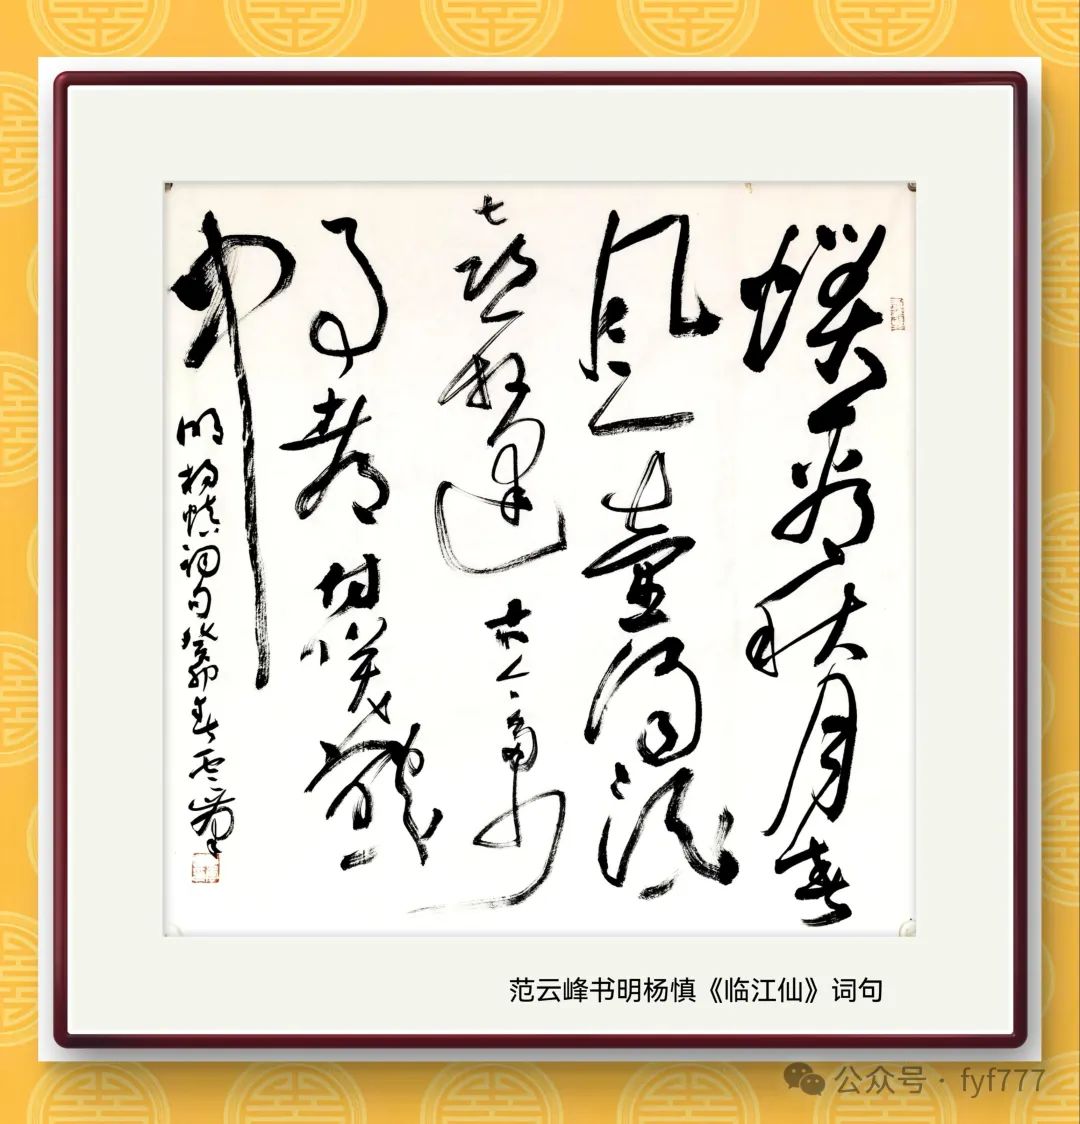 惯看秋月春
风一壶浊酒
喜相逢古今多少
事都付笑谈
中
明杨慎词句癸卯春云峰
范云峰书明杨慎《临江仙》词句
公众号·fyf777